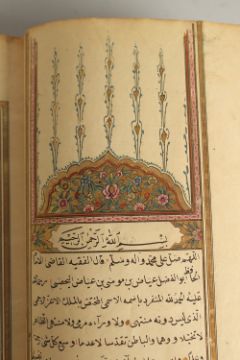 بسم الله الرحمن الرحيم
اللهم صل على محمد وآله وسلم قال الفقيه القاضي
ابو الفضل عياض بن موسى بن عياض اليحصبي
الحمد لله المنفرد باسمه الاسمى المختص بالملك الاعز الاحمى
الذي ليس دونه منتهى ولا وراءه مرمى الظاهر
لا تخيلا ووهما والباطن تقدسا لا عدما وسع كل